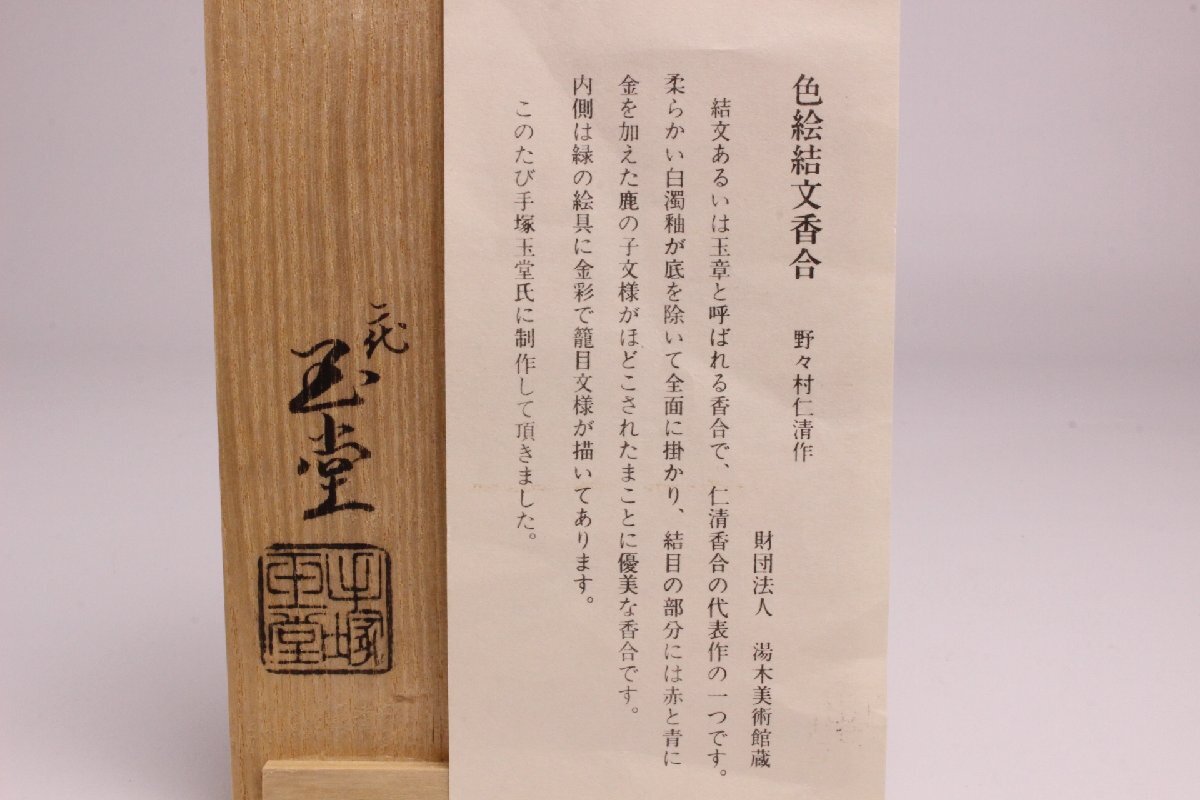 色絵結文香合　野々村仁清作
財団法人　湯木美術館蔵
結文あるいは玉章と呼ばれる香合で、仁清香合の代表作の一つです。
柔らかい白濁釉が底を除いて全面に掛かり、結目の部分には赤と青に
金を加えた鹿の子文様がほどこされたまことに優美な香合です。
内側は緑の絵具に金彩で籠目文様が描いてあります。
このたび手塚玉堂氏に制作して頂きました。
二代
玉堂
手塚
玉堂